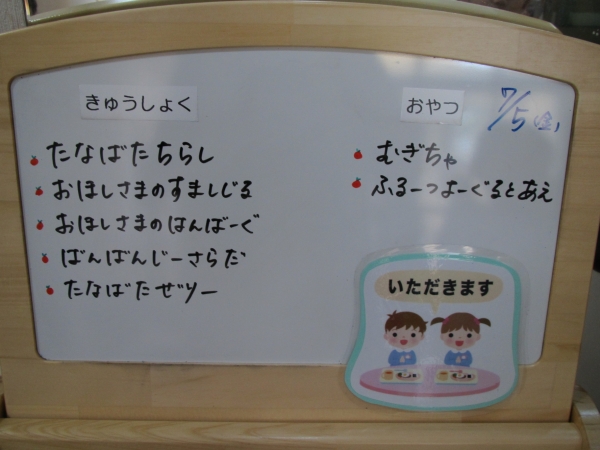 きゅうしょく
たなばたちらし
おほしさまのすましじる
おほしさまのはんばーぐ
ばんばんじーさらだ
たなばたぜりー
おやつ
7/5(金)
むぎちゃ
ふるーつよーぐるとあえ
いただきます